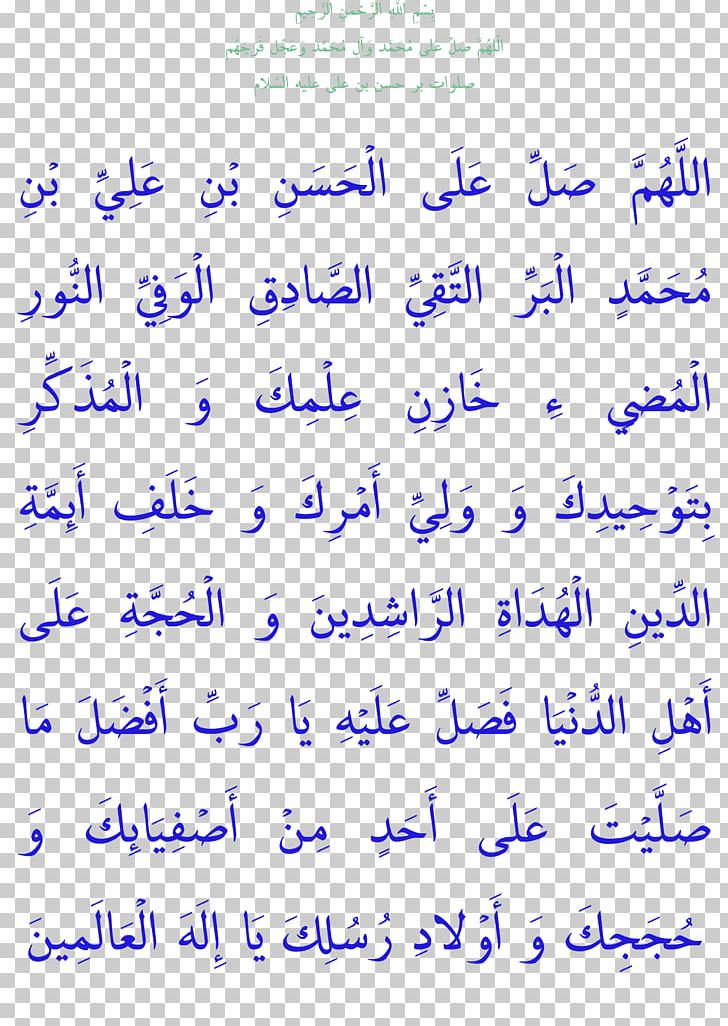 بِسْمِ اللَّهِ الرَّحْمَنِ الرَّحِيمِ
اللَّهُمَّ صَلِّ عَلَى مُحَمَّد وَآلِ مُحَمَّد وَعَجِّل فَرَجَهُم
صلوات بر حسن بن علی علیه السّلام
اللَّهُمَّ صَلِّ عَلَى الْحَسَنِ بْنِ عَلِيِّ بْنِ
مُحَمَّدٍ الْبَرِّ التَّقِيِّ الصَّادِقِ الْوَفِيِّ النُّورِ
الْمُضِي ءِ خَازِنِ عِلْمِكَ وَ الْمُذَكِّرِ
بِتَوْحِيدِكَ وَ وَلِيِّ أَمْرِكَ وَ خَلَفِ أَئِمَّةِ
الدِّينِ الْهُدَاةِ الرَّاشِدِينَ وَ الْحُجَّةِ عَلَى
أَهْلِ الدُّنْيَا فَصَلِّ عَلَيْهِ يَا رَبِّ أَفْضَلَ مَا
صَلَّيْتَ عَلَى أَحَدٍ مِنْ أَصْفِيَائِكَ وَ
حُجَجِكَ وَ أَوْلادِ رُسُلِكَ يَا إِلَهَ الْعَالَمِينَ